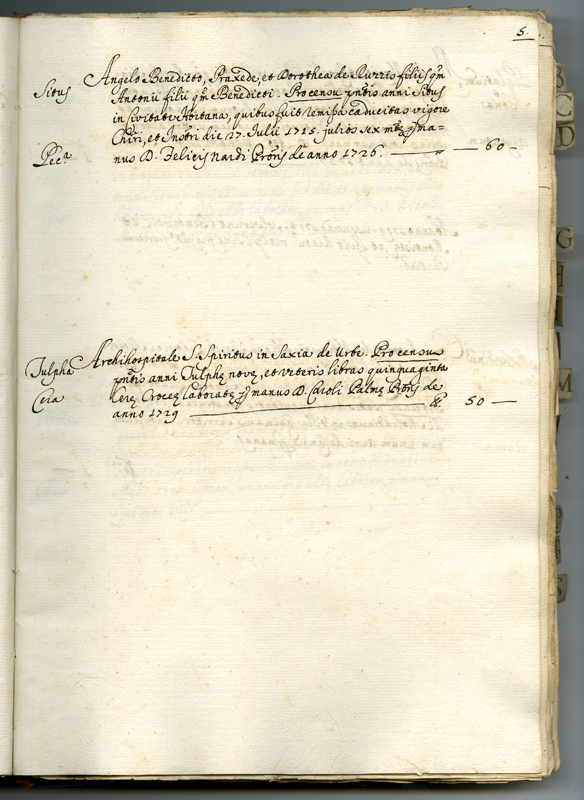 5.
Angelo Benedicto, Praxede, et Dorothea de Ruzzis filijs qm
Situs Antonii filii qm Benedicti. Pro censu pntis anni Situs
in Civitate, quibus fuit remissa caducitas vigore
Chiri, et Instri die 27. Julii 1715. julios sex mta p ma=
Pec.a nus D. Felicis Nardi Proris de anno 1726. — 60 —
Archihospitale S. Spiritus in Saxia de Urbe. Pro censu
Tulpha pntis anni Tulphę novę, et veteris libras quinquaginta
Cera Cerę Croceę laboratę p manus D. Caroli Palmę Proris de
anno 1729 — lb. 50 —
B
C
D
G
H
I
M
S